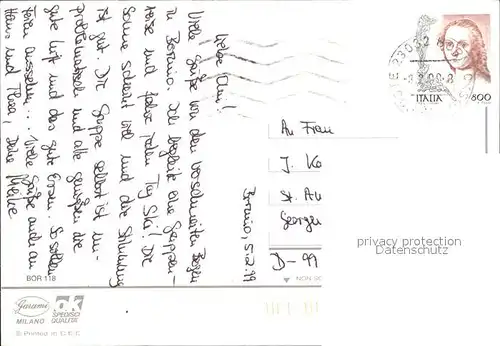 Liebe Omi!
Viele Grüße von den verschneiten Bergen
in Bormio. Ich begleite eine Gruppen-
reise und fahre jeden Tag Ski! Die
Sonne scheint viel und die Stimmung
ist gut. Die Gruppe selbst ist un-
problematisch und alle genießen die
gute Luft und das gute Essen. So sollten
Ferien aussehen... Viele Grüße auch an
Hans und Thea, Deine
Bormio, 5.2.99
An Frau
J. Ke
St. Au
Georgen
D-99
ITALIA 800
privacy protection
Datenschutz
BOR 118
NON SC
Garami
MILANO
OK
SPEDISCI
QUALITÀ
® Printed in C.E.E.